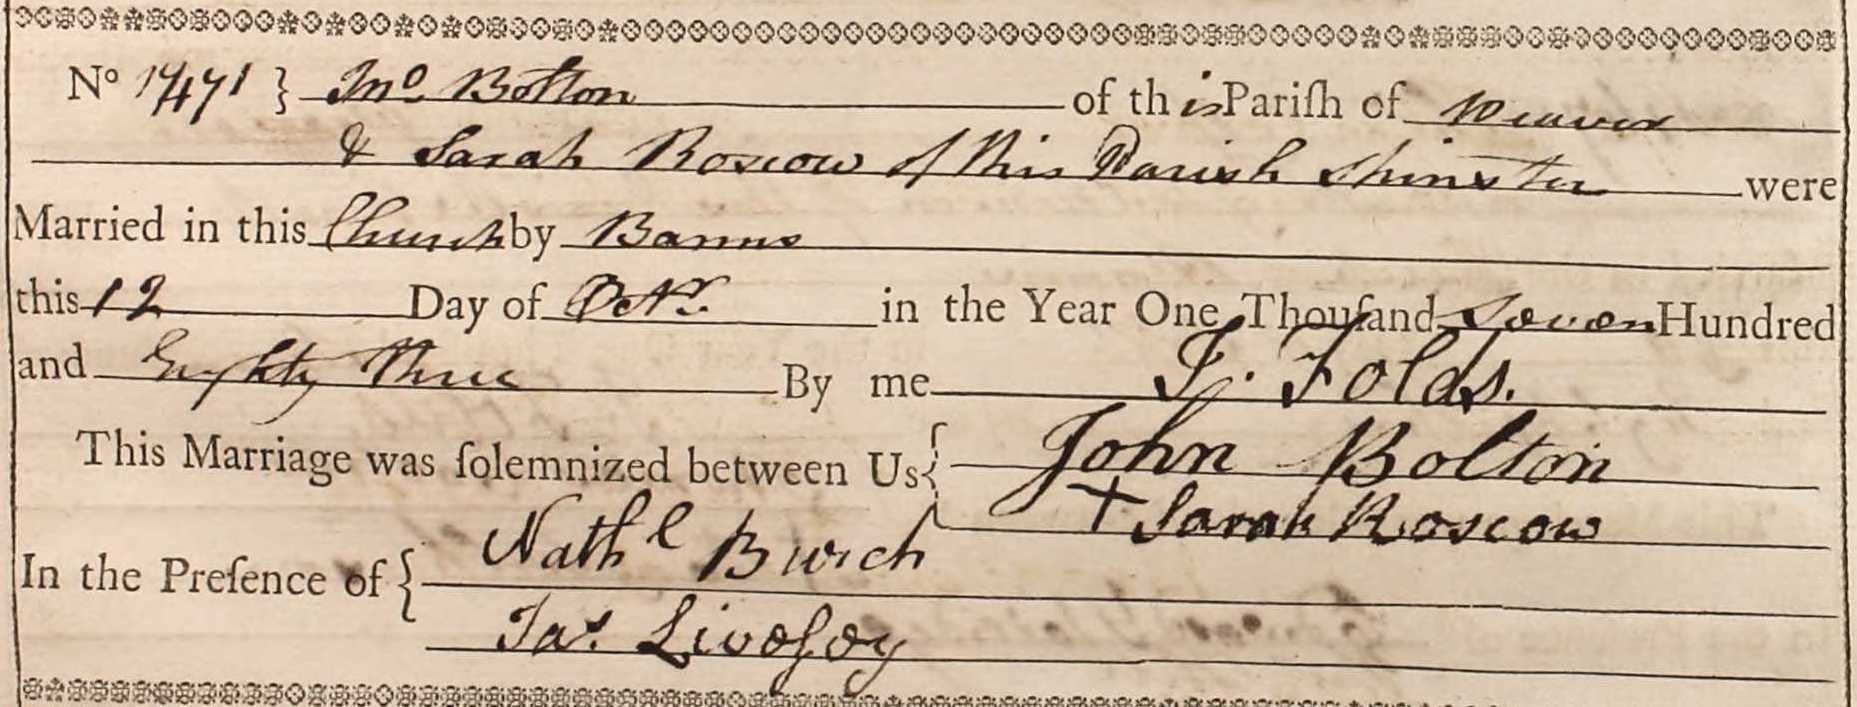 No 1471 } Jno Bolton of this Pariſh of Weaver
& Sarah Roscow of this Parish Spinster were
Married in this Church by Banns
this 12 Day of Octr. in the Year One Thouſand Seven Hundred
and Eighty Three By me J. Folds.
This Marriage was ſolemnized between Us { John Bolton
+ Sarah Roscow
In the Preſence of { Nathl Burch
Jas. Livesey